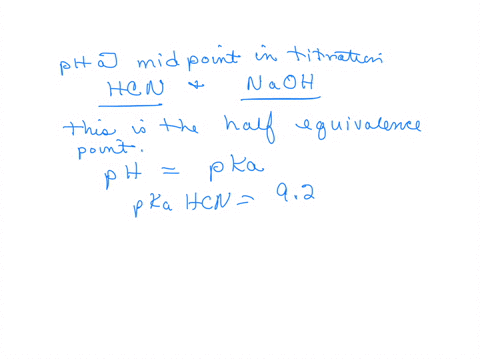 pH @ midpoint in titration
HCN + NaOH
this is the half equivalence
point.
pH = pKa
pKa HCN = 9.2